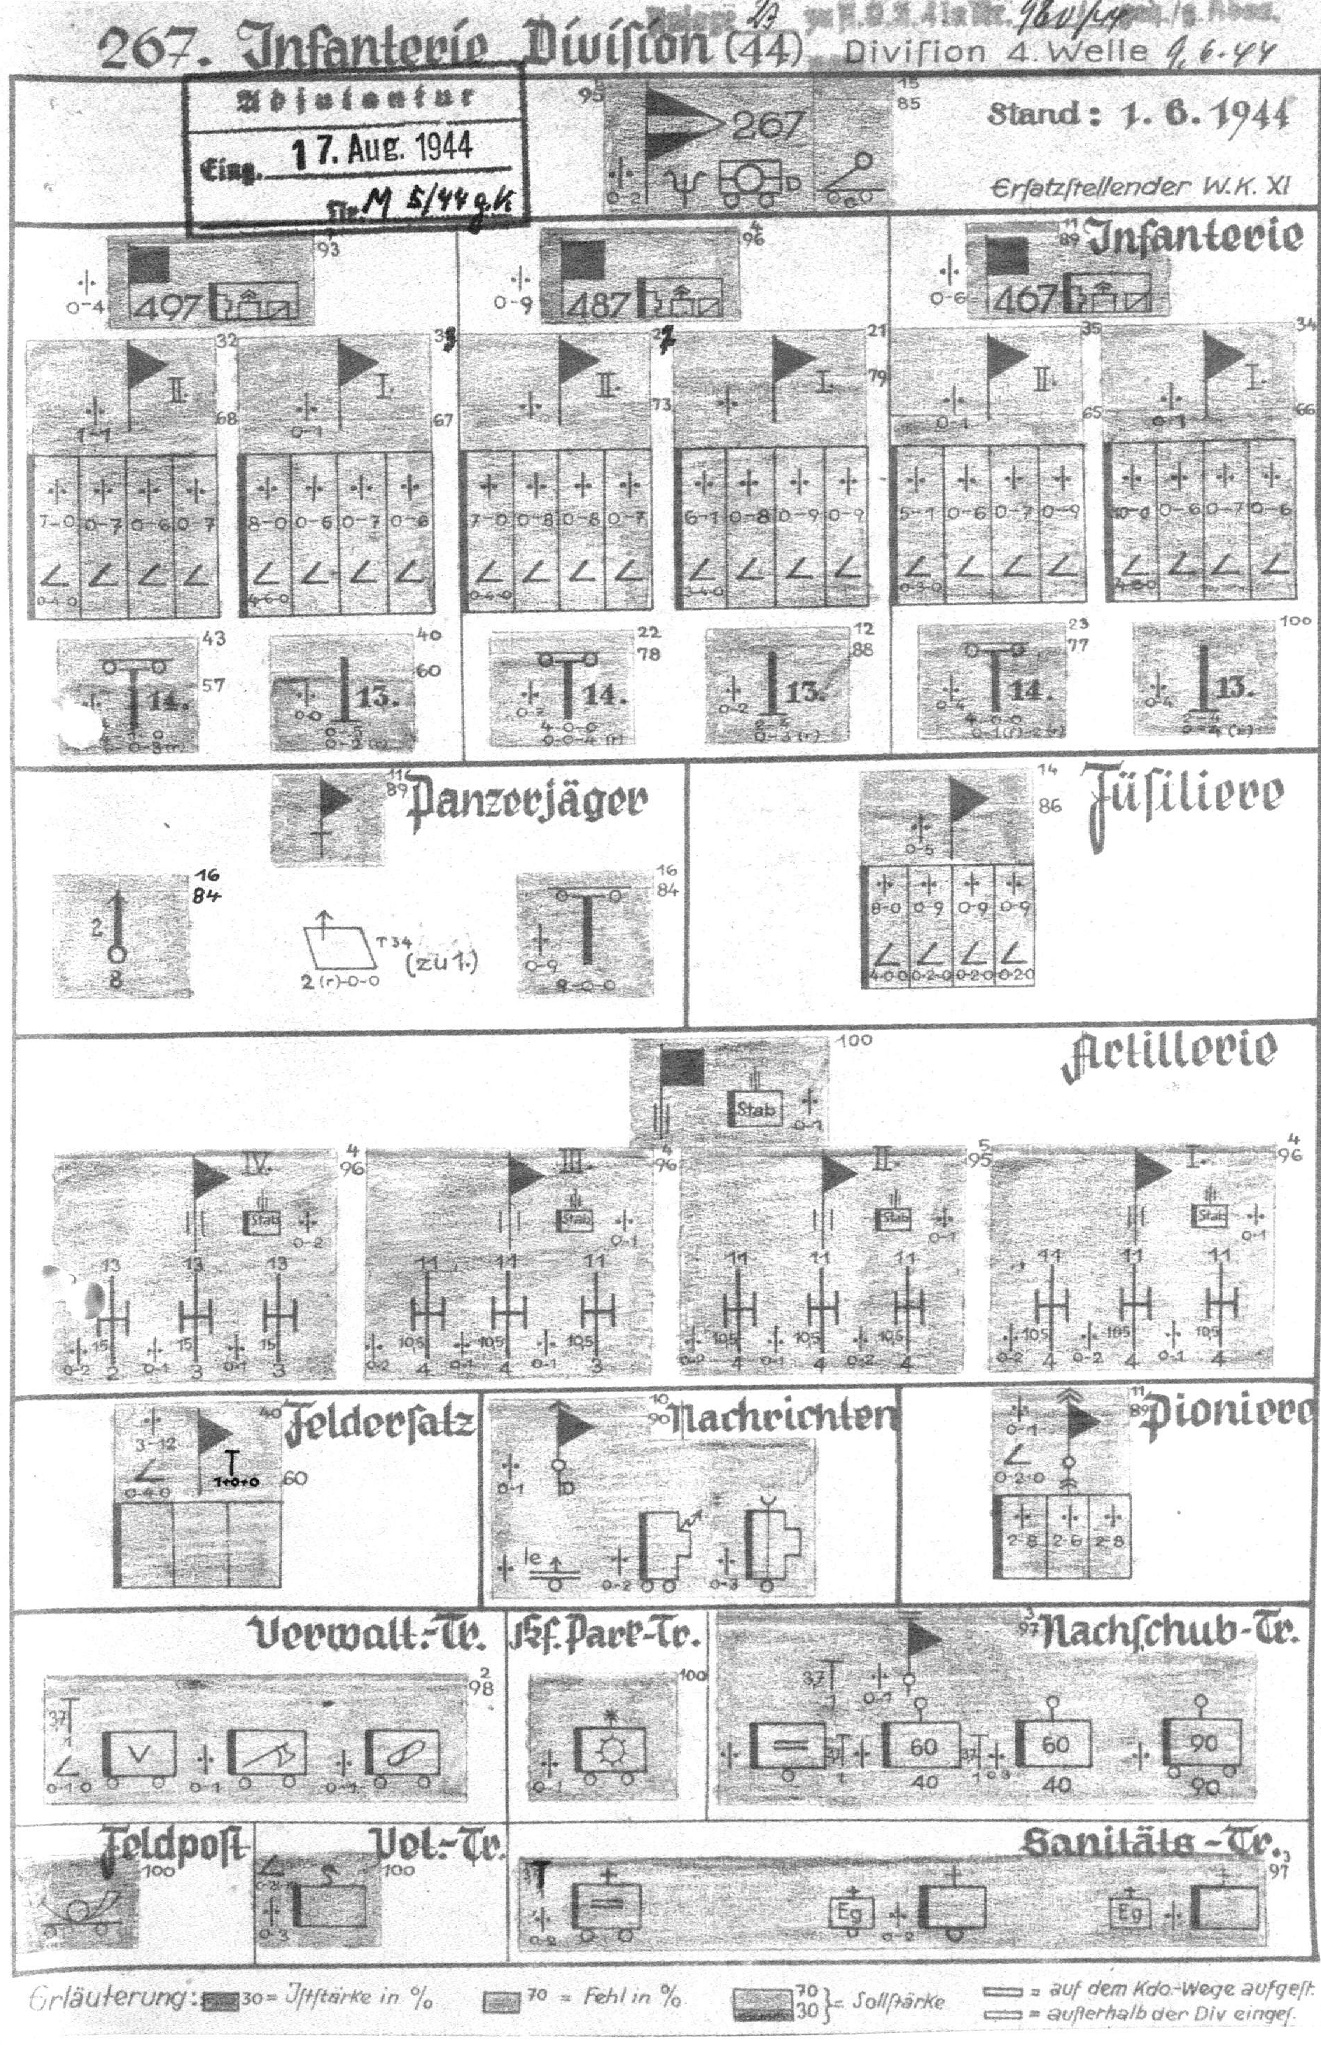 267. Infanterie Division (44) Division 4. Welle 9.6.44
Adjutantur
Eing. 17. Aug. 1944
Nr. M 5/44 g.K
95
15
85
267
0-2
D
Stand: 1. 6. 1944
Ersatzstellender W.K. XI
Infanterie
93
0-4
497
4
96
0-9
487
11
89
0-6
467
32
II.
1-1
68
33
I.
0-1
67
27
II.
73
21
I.
79
35
II.
0-1
65
34
I.
0-1
66
7-0 0-7 0-6 0-7
8-0 0-6 0-7 0-6
7-0 0-8 0-8 0-7
6-1 0-8 0-9 0-9
5-1 0-6 0-7 0-9
10-0 0-6 0-7 0-6
0-4-0
4-6-0
0-4-0
3-4-0
43
57
14.
40
60
13.
0-0
22
78
14.
0-2
4-0-0
0-0-4 (r)
12
88
13.
0-2
0-3 (r)
23
77
14.
0-4
4-0-0
100
13.
0-4
Panzerjäger
11
89
16
84
2
8
T 34
(zu 1.)
2 (r)-0-0
16
84
0-9
9-0-0
Füsiliere
14
86
0-5
8-0 0-9 0-9 0-9
4-0-0 0-2-0 0-2-0 0-2-0
Artillerie
100
Stab
0-1
4
96
IV.
Stab
0-2
4
96
III.
Stab
0-1
5
95
II.
Stab
0-1
4
96
I.
Stab
0-1
13 13 13
11 11 11
11 11 11
11 11 11
15 15 15
10,5 10,5 10,5
10,5 10,5 10,5
10,5 10,5 10,5
0-2 2 0-1 3 0-1 3
0-2 4 0-1 4 0-1 3
0-2 4 0-1 4 0-2 4
0-2 4 0-2 4 0-1 4
Feldersatz
40
60
3-12
0-4-0
1+0+0
Nachrichten
10
90
0-1
D
le
0-2
0-3
Pioniere
11
89
0-1
0-2-0
2-8 2-6 2-8
Verwalt.-Tr.
2
98
3,7
0-1-0
V
0-1
0-1
Kf. Park-Tr.
100
0-1
Nachschub-Tr.
3
97
3,7
1
0-1
60
40
60
40
90
90
Feldpost
100
Vet.-Tr.
100
0-3
Sanitäts-Tr.
3
97
0-2
Eg
0-2
Eg
Erläuterung: 30 = Iststärke in %
70 = Fehl in %
70
30 } = Sollstärke
= auf dem Kdo.-Wege aufgest.
= außerhalb der Div einges.